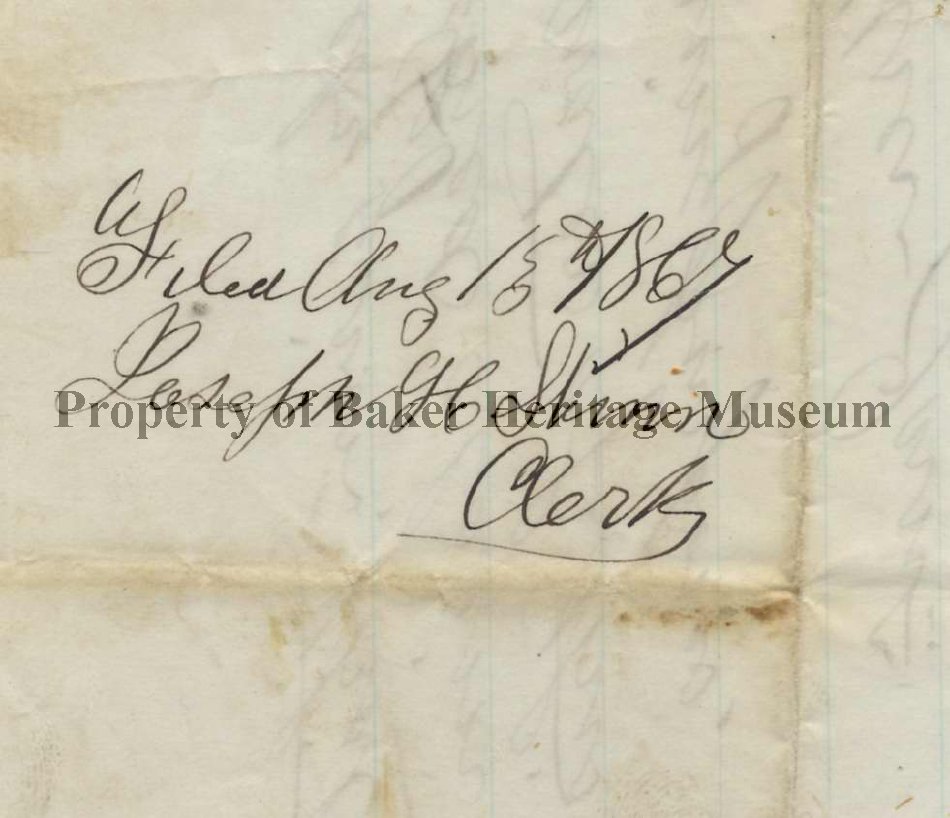 Filed Aug 15th 1867
Joseph H Shinn
Clerk
Property of Baker Heritage Museum